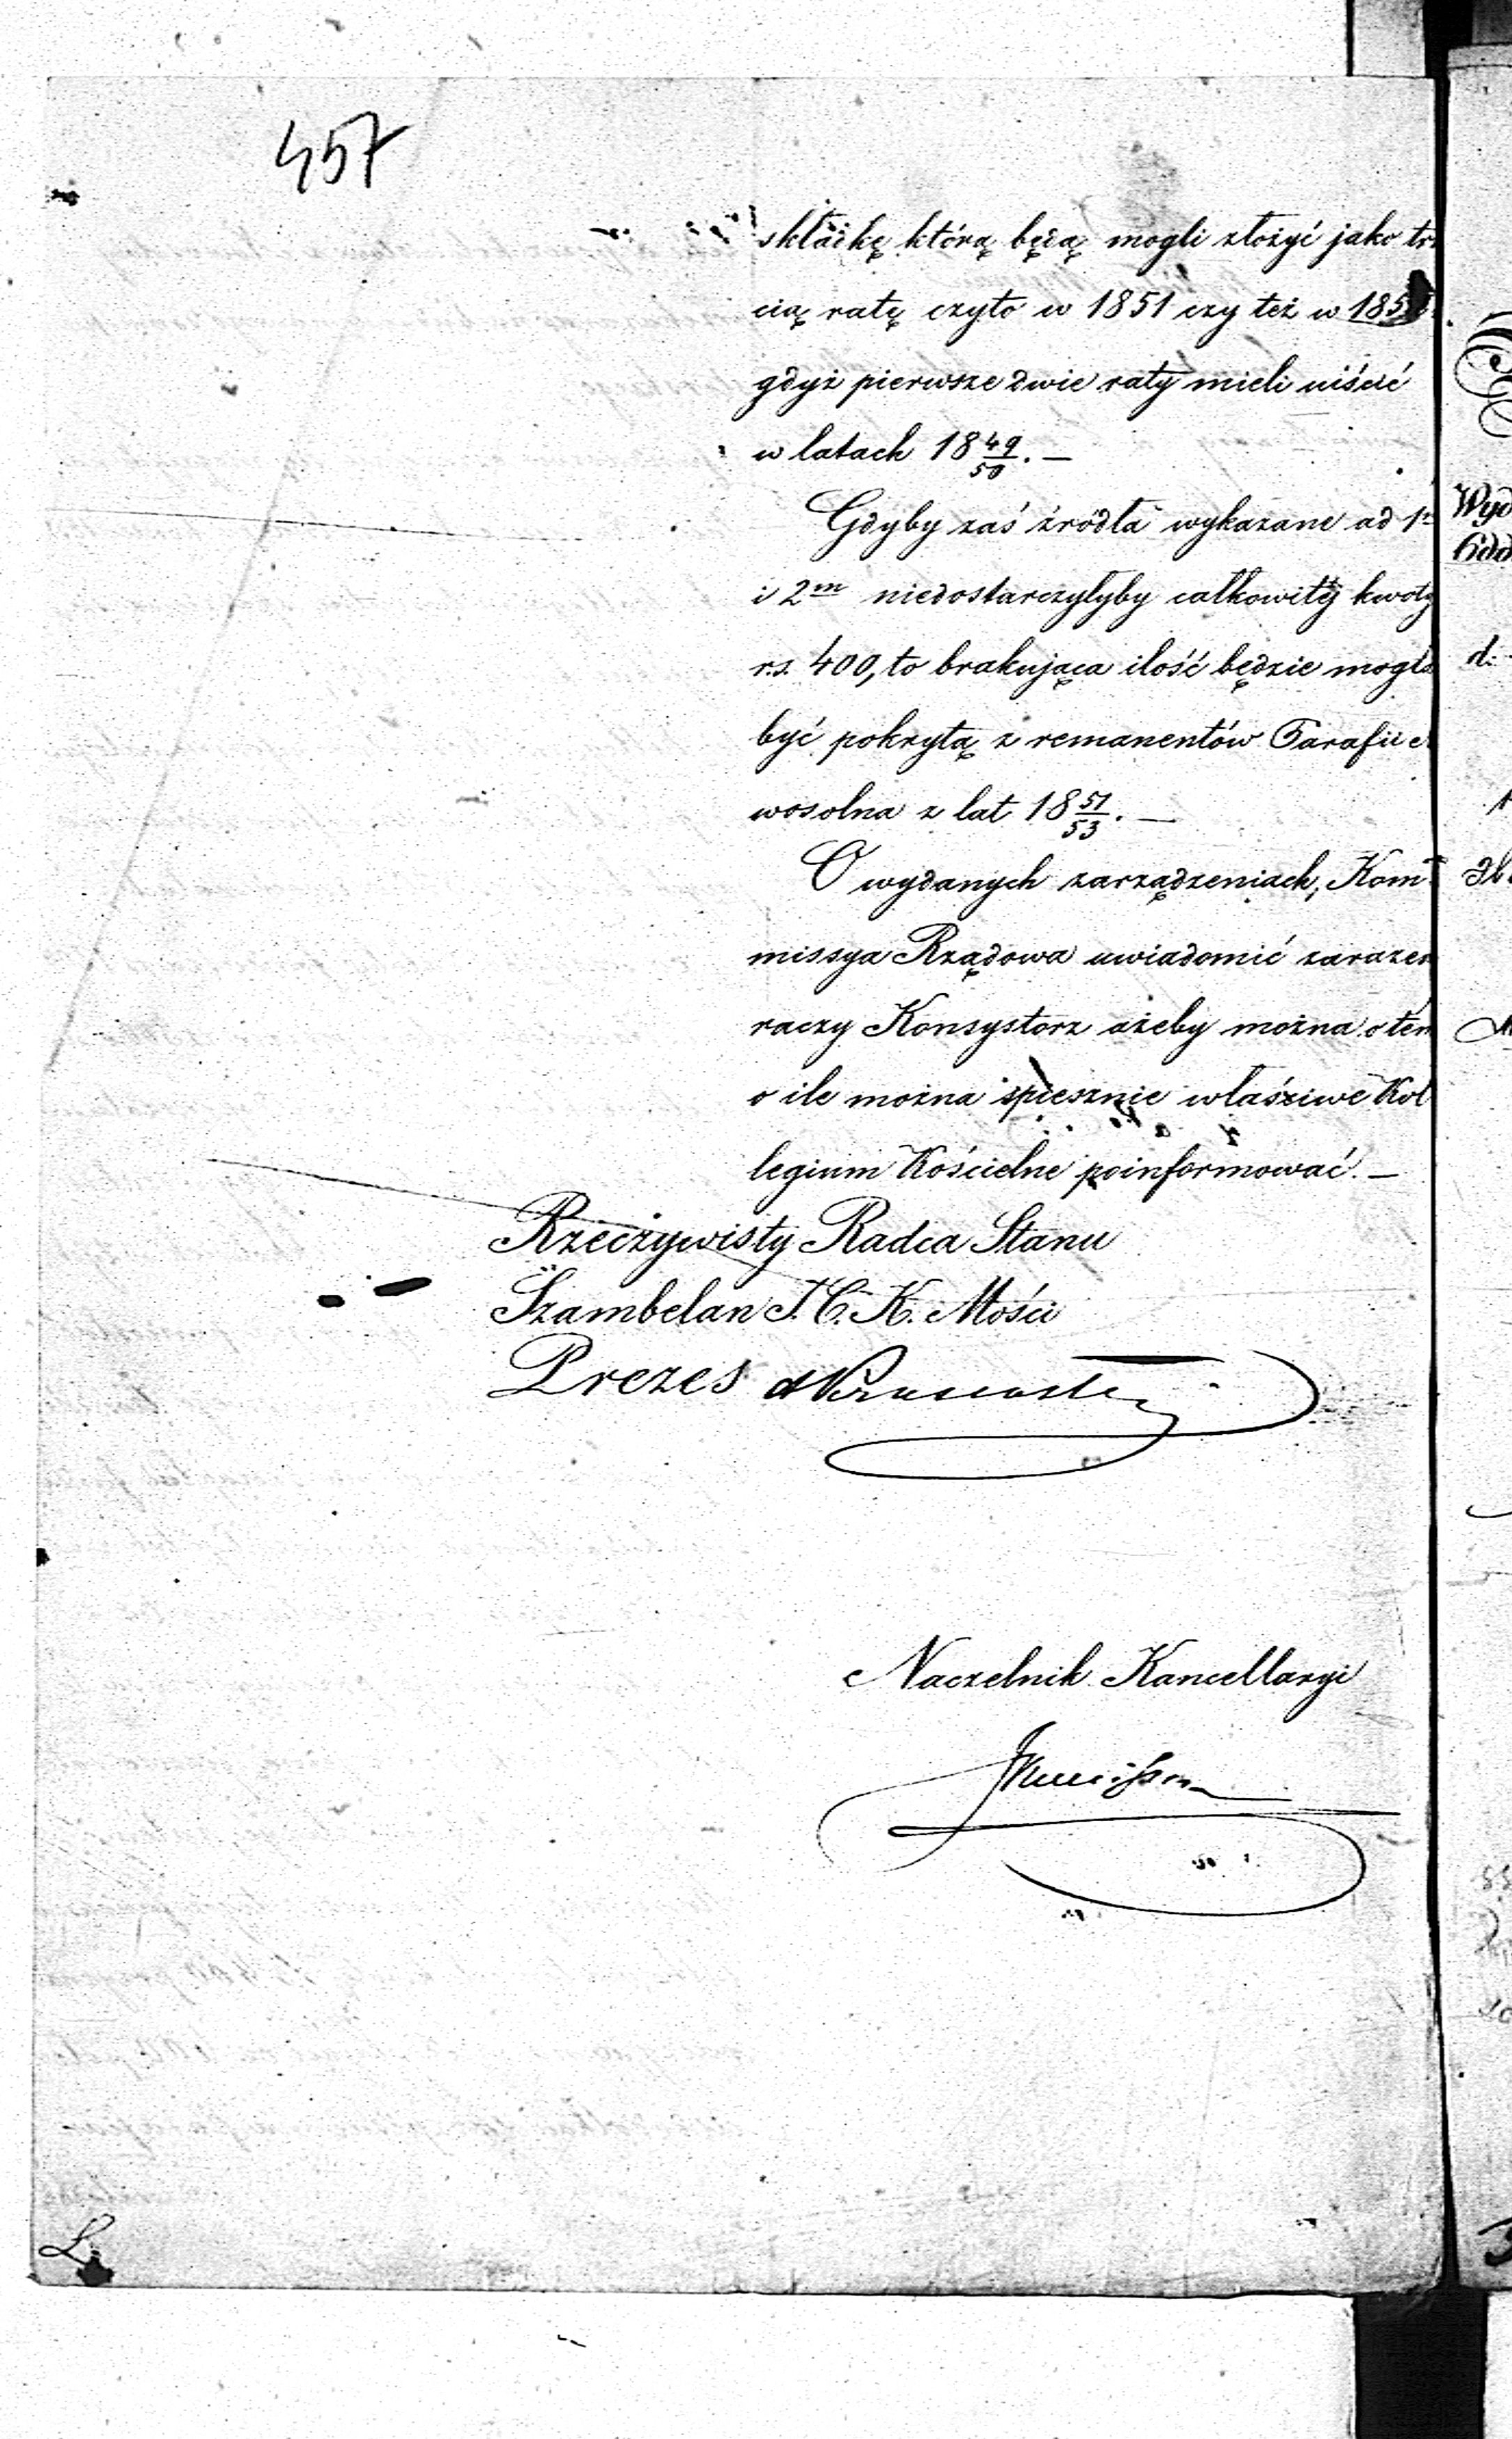 457
składkę którą będą mogli złożyć jako trz
cią ratę czyto w 1851 czy też w 185
gdyż pierwsze dwie raty mieli uiścić
w latach 18 49/50. —
Gdyby zaś źródła wykazane ad 1m
i 2m niedostarczyłyby całkowitéj kwoty
r.s. 400, to brakująca ilość będzie mogła
być pokrytą z remanentów Parafii
wosolna z lat 18 51/53. —
O wydanych zarządzeniach, Kom-
missya Rządowa uwiadomić zarazem
raczy Konsystorz ażeby można o tém
o ile można śpiesznie właściwe Kol
legium Kościelne poinformować. —
Rzeczywisty Radca Stanu
Szambelan J. C. K. Mości
Prezes
Naczelnik Kancellaryi